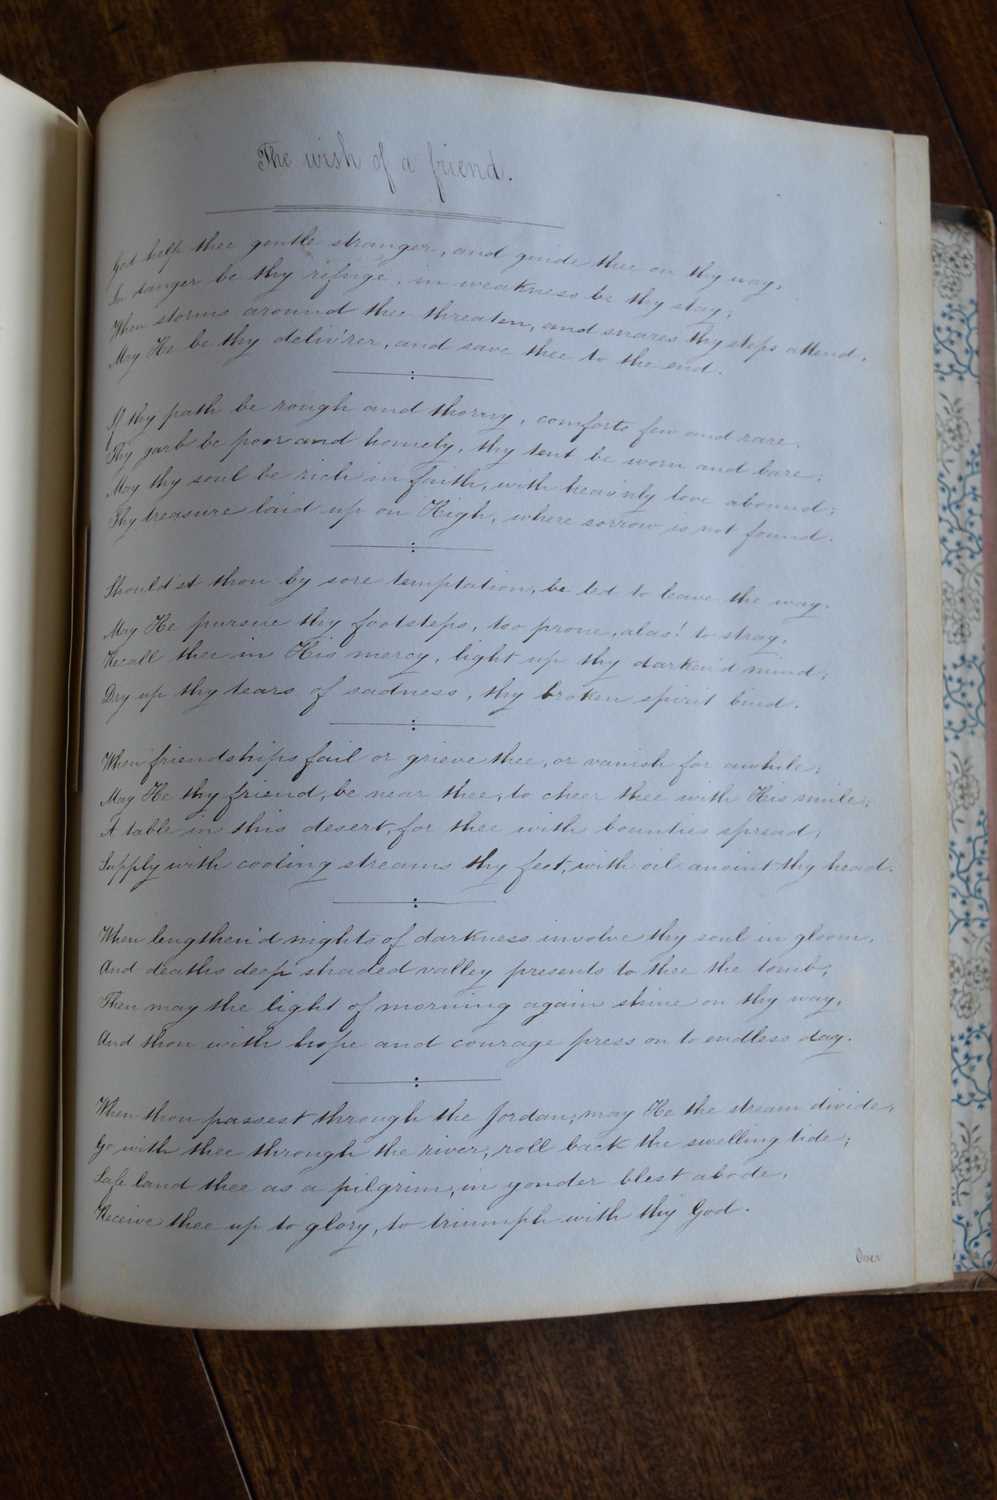 The wish of a friend.
God help thee gentle stranger, and guide thee on thy way,
In danger be thy refuge, in weakness be thy stay;
When storms around thee threaten, and snares thy steps attend,
May He be thy deliv'rer, and save thee to the end.
If thy path be rough and thorny, comforts few and rare,
Thy garb be poor and homely, thy tent be worn and bare;
May thy soul be rich in Faith, with heav'nly love abound;
Thy treasure laid up on High, where sorrow is not found.
Should'st thou by sore temptation, be led to leave the way,
May He pursue thy footsteps, too prone, alas! to stray,
Recall thee in His mercy, light up thy darken'd mind;
Dry up thy tears of sadness, thy broken spirit bind.
When friendships fail or grieve thee, or vanish for awhile;
May He thy friend, be near thee, to cheer thee with His smile;
A table in this desert, for thee with bounties spread,
Supply with cooling streams thy feet, with oil anoint thy head.
When lengthen'd nights of darkness involve thy soul in gloom,
And deaths deep shaded valley presents to thee the tomb,
Then may the light of morning again shine on thy way,
And thou with hope and courage press on to endless day.
When thou passest through the Jordan, may He the stream divide,
Go with thee through the river, roll back the swelling tide;
Safe land thee as a pilgrim, in yonder blest abode,
Receive thee up to glory, to triumph with thy God.
Over